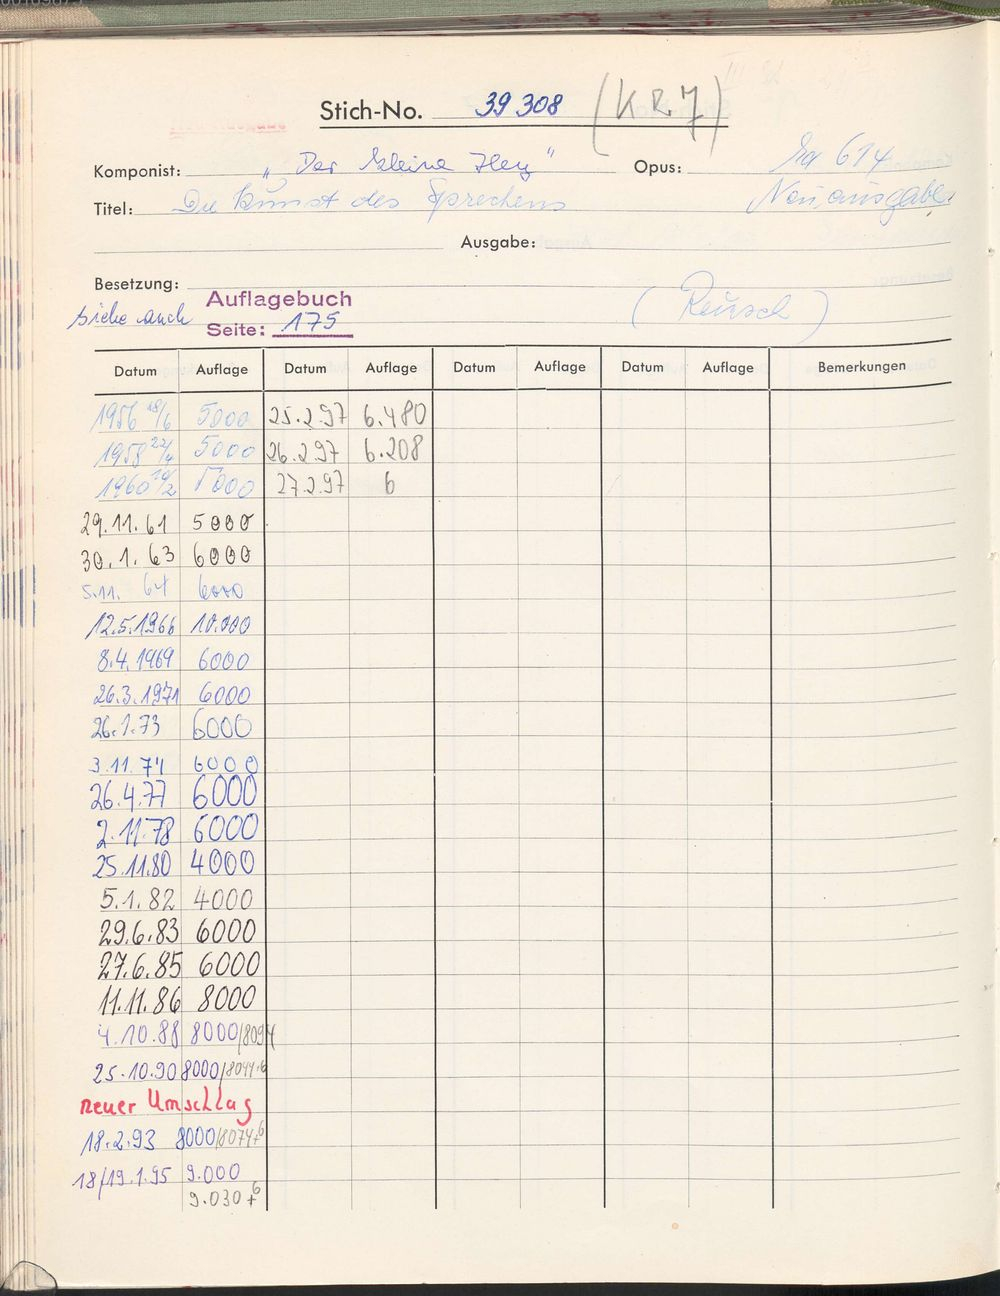 Stich-No. 39 308 (KR 7)
Komponist: „Der kleine Hey" Opus: Ed 614
Titel: Die Kunst des Sprechens Neuausgabe
Ausgabe:
Besetzung:
siehe auch Auflagebuch
Seite: 175
(Reusch)
Datum Auflage Datum Auflage Datum Auflage Datum Auflage Bemerkungen
1956 18/6 5000 25.2.97 6.480
1958 22/4 5000 26.2.97 6.208
1960 10/2 5000 27.2.97 6
29.11.61 5000
30.1.63 6000
5.11.64 6000
12.5.1966 10.000
8.4.1969 6000
26.3.1971 6000
26.1.73 6000
3.11.74 6000
26.4.77 6000
2.11.78 6000
25.11.80 4000
5.1.82 4000
29.6.83 6000
27.6.85 6000
11.11.86 8000
4.10.88 8000/8094
25.10.90 8000/8044+6
neuer Umschlag
18.2.93 8000/8074+6
18/19.1.95 9.000
9.030+6